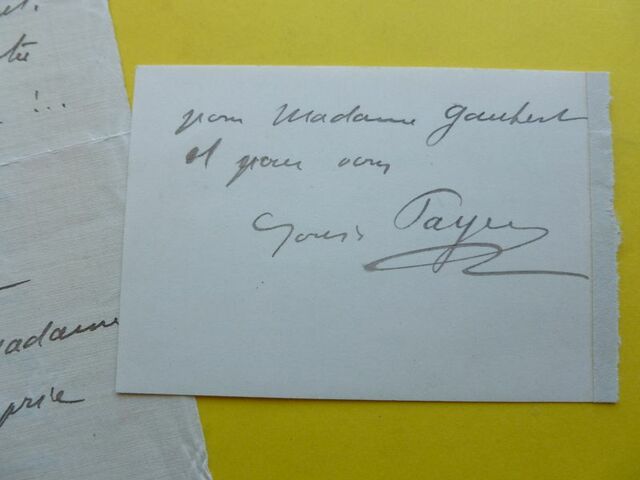 !..
pour Madame Gaubert
et pour vous
Louis Payen
Madame
prie